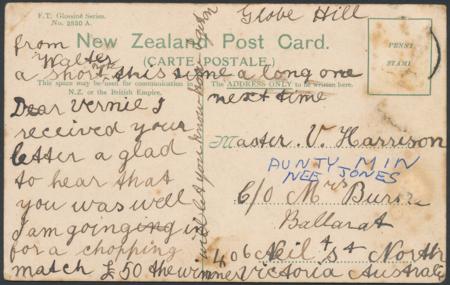 F.T. Glossine Series.
No. 2830 A.
Globe Hill
New Zealand Post Card.
(CARTE POSTALE.)
This space may be used for communication
N.Z. or the British Empire.
The ADDRESS ONLY to be written here.
PENNY
STAMP
from
Walter
a short this time a long one
next time
Dear Vernie I
received your
letter a glad
to hear that
you was well
I am going in
for a chopping
match £50 the winner
will let you know
Master V. Harrison
AUNTY MIN
NEE JONES
C/O Mrs
Ballarat
406 Neil St North
Victoria Australia